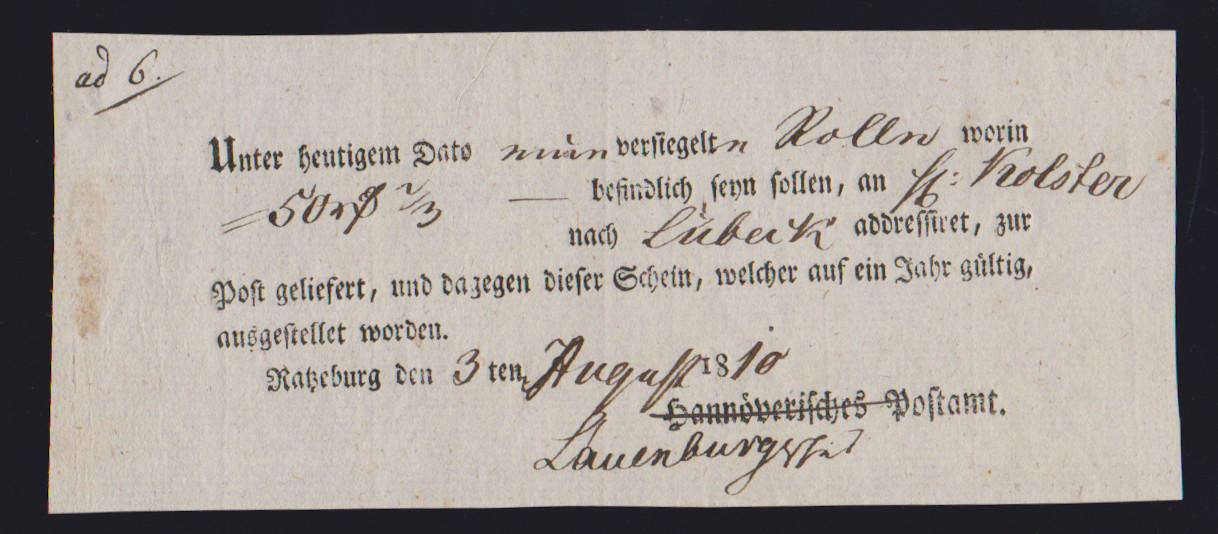 ad 6.
Unter heutigem Dato einen versiegelten Rolln worin
= 50 rß 2/3 — befindlich seyn sollen, an H: Kolster
nach Lübeck addressiret, zur
Post geliefert, und dagegen dieser Schein, welcher auf ein Jahr gültig,
ausgestellet worden.
Ratzeburg den 3 ten August 1810
Hannöverisches Postamt.
Lauenburgsches